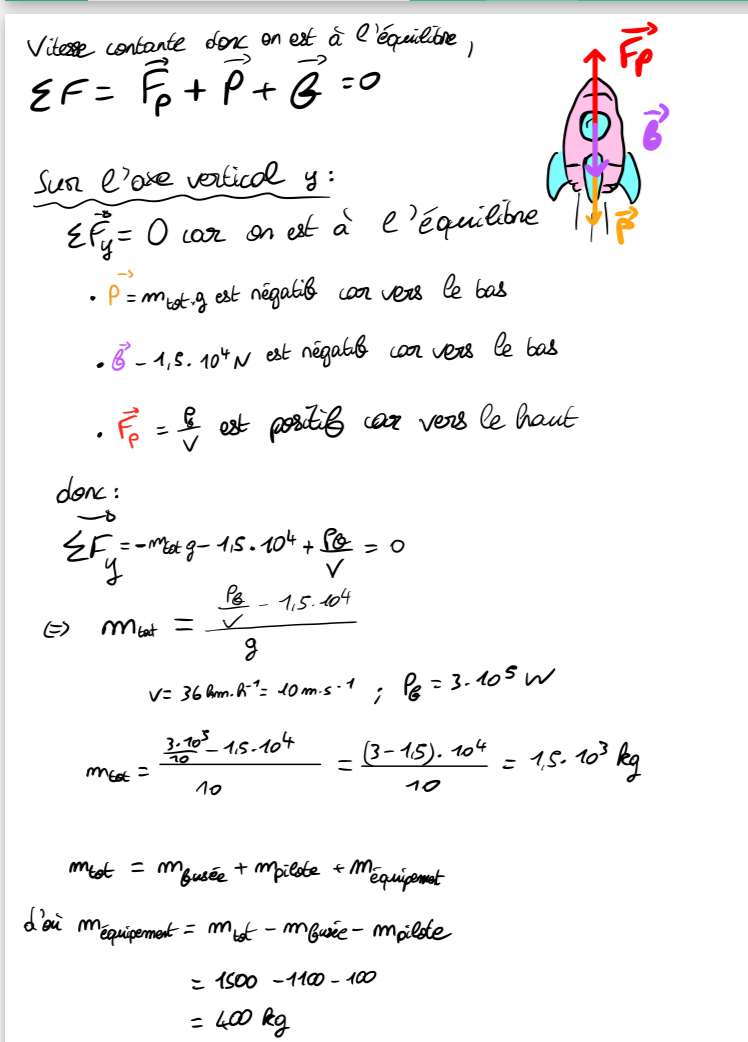 Vitesse contante donc on est à l'équilibre,
ΣF = F⃗p + P⃗ + f⃗ = 0
F⃗p
f⃗
P⃗
Sur l'axe vertical y :
ΣF⃗y = 0 car on est à l'équilibre
• P⃗ = mtot.g est négatif car vers le bas
• f⃗ - 1,5.10⁴ N est négatif car vers le bas
• F⃗p = Pf/V est positif car vers le haut
donc :
ΣF⃗y = -mtot g - 1,5.10⁴ + Pf/V = 0
⇔ mtot = (Pf/V - 1,5.10⁴)/g
V = 36 km.h⁻¹ = 10 m.s⁻¹ ; Pf = 3.10⁵ W
mtot = (3.10⁵/10 - 1,5.10⁴)/10 = (3-1,5).10⁴/10 = 1,5.10³ kg
mtot = mfusée + mpilote + méquipement
d'où méquipement = mtot - mfusée - mpilote
= 1500 - 1100 - 100
= 400 kg